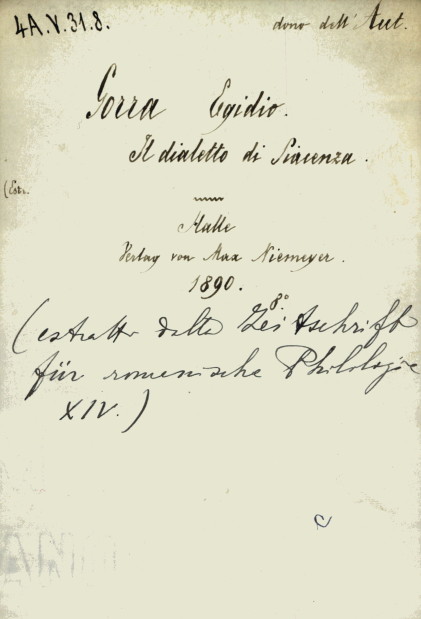 4A.V.31.8.
dono dell' Aut.
Gorra Egidio.
Il dialetto di Piacenza.
(Estr.
Halle
Verlag von Max Niemeyer.
1890.
8°
(estratto dalla Zeitschrift
für romanische Philologie
XIV.)